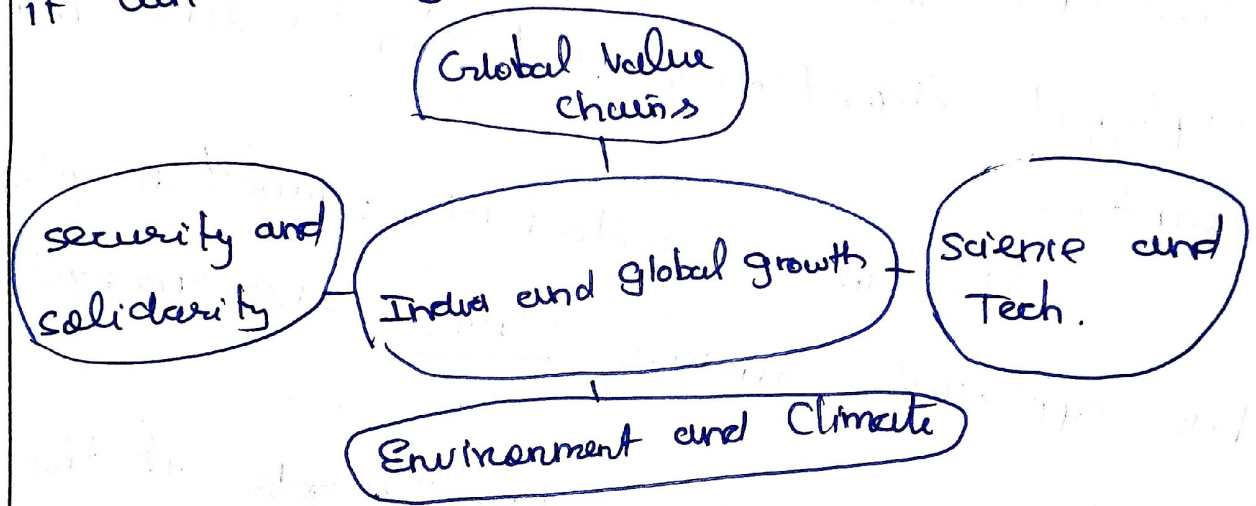 it can
Global Value
Chains
security and
solidarity
India and global growth
Science and
Tech.
Environment and Climate